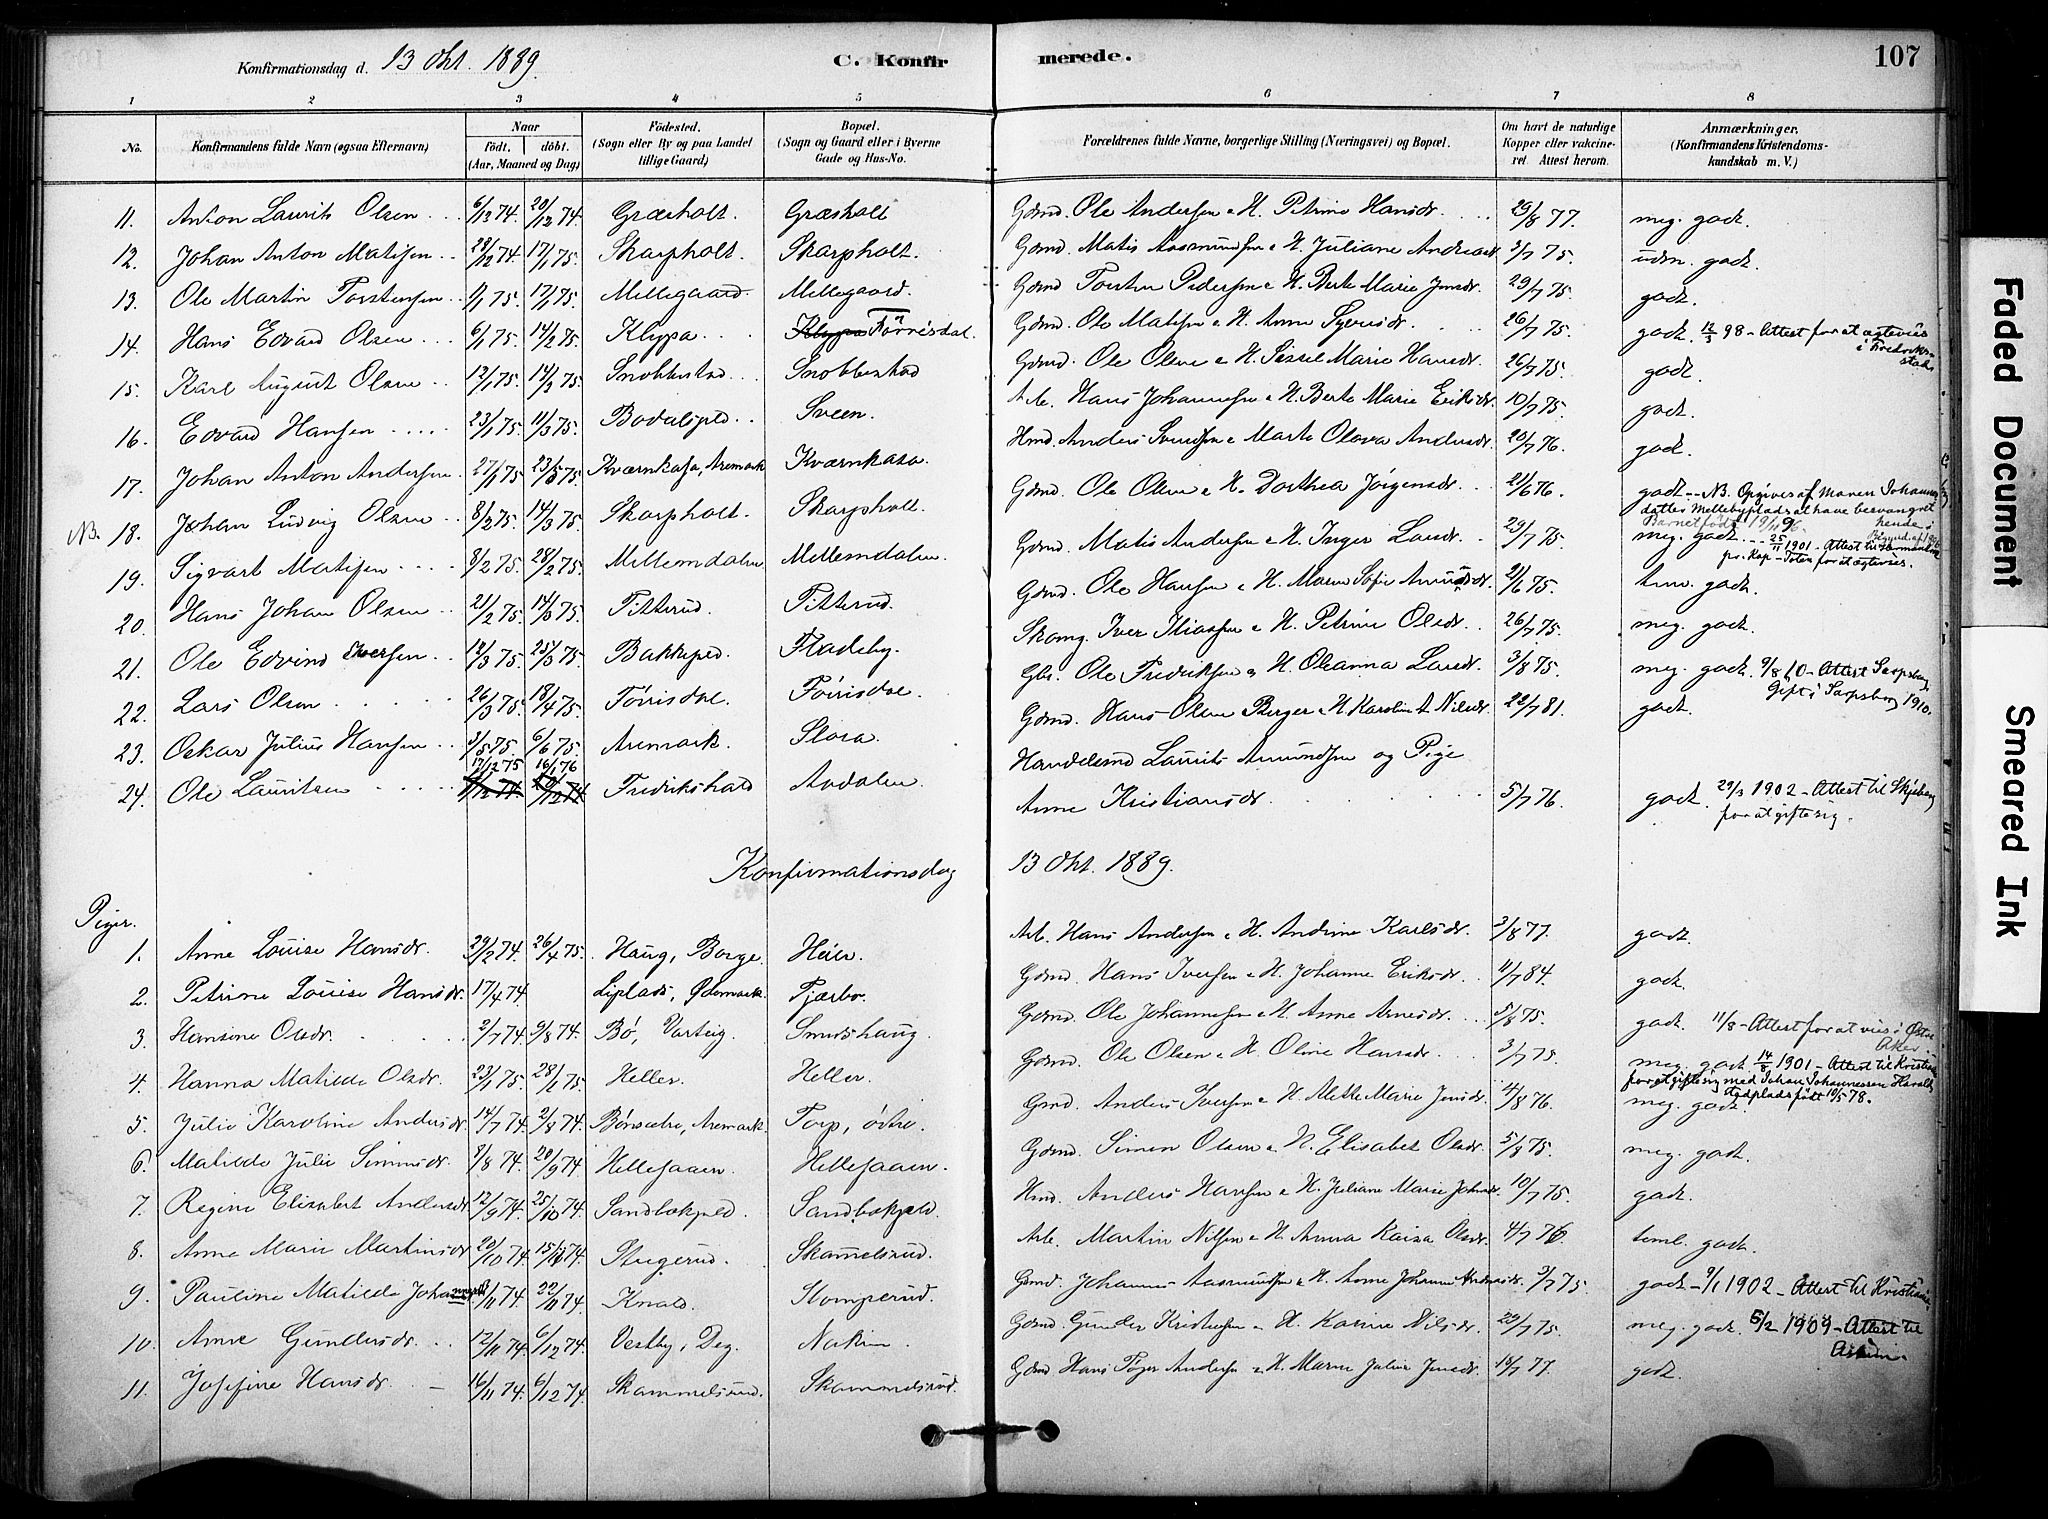 Konfirmationsdag d. 13 Okt. 1889. C. Konfirmerede. 107
1 2 3 4 5 6 7 8
No. Konfirmandens fulde Navn (ogsaa Efternavn) Naar født. døbt. (Aar, Maaned og Dag) Fødested. (Sogn eller By og paa Landet tillige Gaard) Bopæl. (Sogn og Gaard eller i Byerne Gade og Hus-No. Forældrenes fulde Navne, borgerlige Stilling (Næringsvei) og Bopæl. Om havt de naturlige Kopper eller vakcineret Attest herom. Anmærkninger. (Konfirmandens Kristendomskundskab m. V.)
11. Anton Laurits Olsen 6/12 74. 20/12 74. Græsholt. Græsholt Gdmd. Ole Andersen & H. Petrine Hansdr. 29/8 77. meg. godt.
12. Johan Anton Matisen 28/12 74. 17/1 75. Skarpholt. Skarpholt. Gdmd. Matis Aasmundsen & H. Juliane Andreasdr 3/7 75. udm. godt.
13. Ole Martin Torstensen 9/1 75. 17/1 75. Millegaard. Millegaard. Gdmd Torsten Pedersen & H. Berte Marie Jensdr. 29/7 75. godt.
14. Hans Edvard Olsen 6/1 75. 14/2 75. Klypa Klypa Törrisdal. Gdmd. Ole Matisen & H. Anne Syversdr. 26/7 75. godt. 12/3 98 - Attest for at ægtevies i Fredrikstad
15. Karl August Olsen 13/1 75. 14/2 75. Snobbestad Snobbestad Gdmd. Ole Olsen & H. Sissel Marie Hansdr. 26/7 75. godt.
16. Edvard Hansen 23/1 75. 11/3 75. Bodalspld. Sveen. Arb. Hans Johannesen & H. Berte Marie Eriksdr. 10/7 75. godt.
17. Johan Anton Andersen 27/1 75. 23/5 75. Kværnkasa, Aremark Kværnkasa. Hmd. Anders Svendsen & Marte Olava Andersdr. 20/7 76. godt.
NB. 18. Johan Ludvig Olsen 8/2 75. 14/3 75. Skarpholt. Skarpholt. Gdmd. Ole Olsen & H. Dorthea Jørgensdr. 21/6 76. godt. - NB. Opgives af Maren Johannesdatter Mellebyplads at have besvangret hende i
Barnet født 19/11 96.
19. Sigvart Matisen 8/2 75. 28/2 75. Mellemdalen Mellemdalen. Gdmd. Matis Andersen & H. Inger Larsdr. 29/7 75. meg. godt. 25/11 1901 - Attest til
pr. Kap - Toten for at ægtevies.
20. Hans Johan Olsen 21/2 75. 14/3 75. Titterud. Titterud. Gdmd. Ole Hansen & H. Maren Sofie Amundsdr. 21/6 75. tem. godt.
21. Ole Edvind Iversen 12/3 75. 25/3 75. Bakkepld. Fladeby. Skomg. Iver Iliassen & H. Petrine Olsdr. 26/7 75. meg. godt.
22. Lars Olsen 26/3 75. 18/4 75. Törrisdal Törrisdal. Gbr. Ole Fredriksen & H. Oleanna Larsdr. 3/8 75. meg. godt. 9/8 10 - Attest Sarpsborg.
Gift i Sarpsborg 1910.
23. Oskar Julius Hansen 3/5 75. 6/6 75. Aremark. Slora. Gdmd. Hans Olsen Berger & H. Karoline A. Nilsdr. 22/7 81. godt.
24. Ole Lauritsen 17/12 75 16/1 76 Fredrikshald Aadalen Handelsmd Laurits Amundsen og Pige
Anne Kristiansdr. 5/7 76. godt. 29/3 1902 - Attest til Skjeberg
for at gifte sig.
Konfirmationsdag 13 Okt. 1889.
Piger.
1. Anne Louise Hansdr. 29/2 74. 26/4 75. Haug, Borge. Heier. Arb. Hans Andersen & H. Andrine Karlsdr. 3/8 77. godt.
2. Petrine Louise Hansdr. 17/4 74. Liplads, Ødemark. Tjærbo. Gdmd. Hans Iversen & H. Johanne Eriksdr. 11/7 84. godt.
3. Hansine Olsdr. 2/7 74. 9/8 74. Bö, Varteig. Smedshaug. Gdmd. Ole Johannesen & H. Anne Arnesdr. 5/8 75. godt. 11/8 - Attest for at vies i Østre Aker.
4. Hanna Matilde Olsdr. 23/1 75. 28/2 75. Heller. Heller. Gdmd. Ole Olsen & H. Oline Hansdr. 3/7 75. meg. godt. 14/8 1901 - Attest til Kristia
for at gifte sig med Johan Johannessen
Fødplads født 10/5 78.
5. Julie Karoline Andersdr. 14/7 74. 2/8 74. Bönsætre, Aremark. Torp, östre. Gmd. Anders Iversen & H. Mette Marie Jensdr. 4/8 76. meg. godt.
6. Matilde Julie Simensdr. 9/8 74. 20/9 74. Hellesaaen. Hellesaaen. Gdmd. Simen Olsen & H. Elisabet Olsdr. 5/8 75. meg. godt.
7. Regine Elisabet Andersdr 12/9 74. 25/10 74. Sandbækpld. Sandbækpld. Hmd. Anders Hansen & H. Juliane Marie Johnsdr. 10/7 75. godt.
8. Anne Marie Martinsdr. 20/10 74. 15/11 74. Stugerud. Skamelsrud. Arb. Martin Nilsen & H. Anna Kaisa Olsdr. 4/7 76. teml. godt.
9. Pauline Matilde Johannesdr 74. 22/11 74. Knold. Stomperud. Gdmd. Johannes Aasmundsen & H. Anne Johanne Andersdr. 3/7 75. godt - 9/1 1902 - Attest til Kristiania
10. Anne Gundersdr. 12/11 74. 6/12 74. Vestby, Deg. Nakim. Gdmd. Gunder Kristensen & H. Karine Nilsdr. 29/7 75. meg. godt. 5/2 1909 - Attest til
11. Josefine Hansdr. 16/11 74. 6/12 74. Skammelsrud. Skammelsrud. Gdmd Hans Töger Andersen & H. Maren Julie Jensdr. 10/7 77. godt.
Faded Document
Smeared Ink